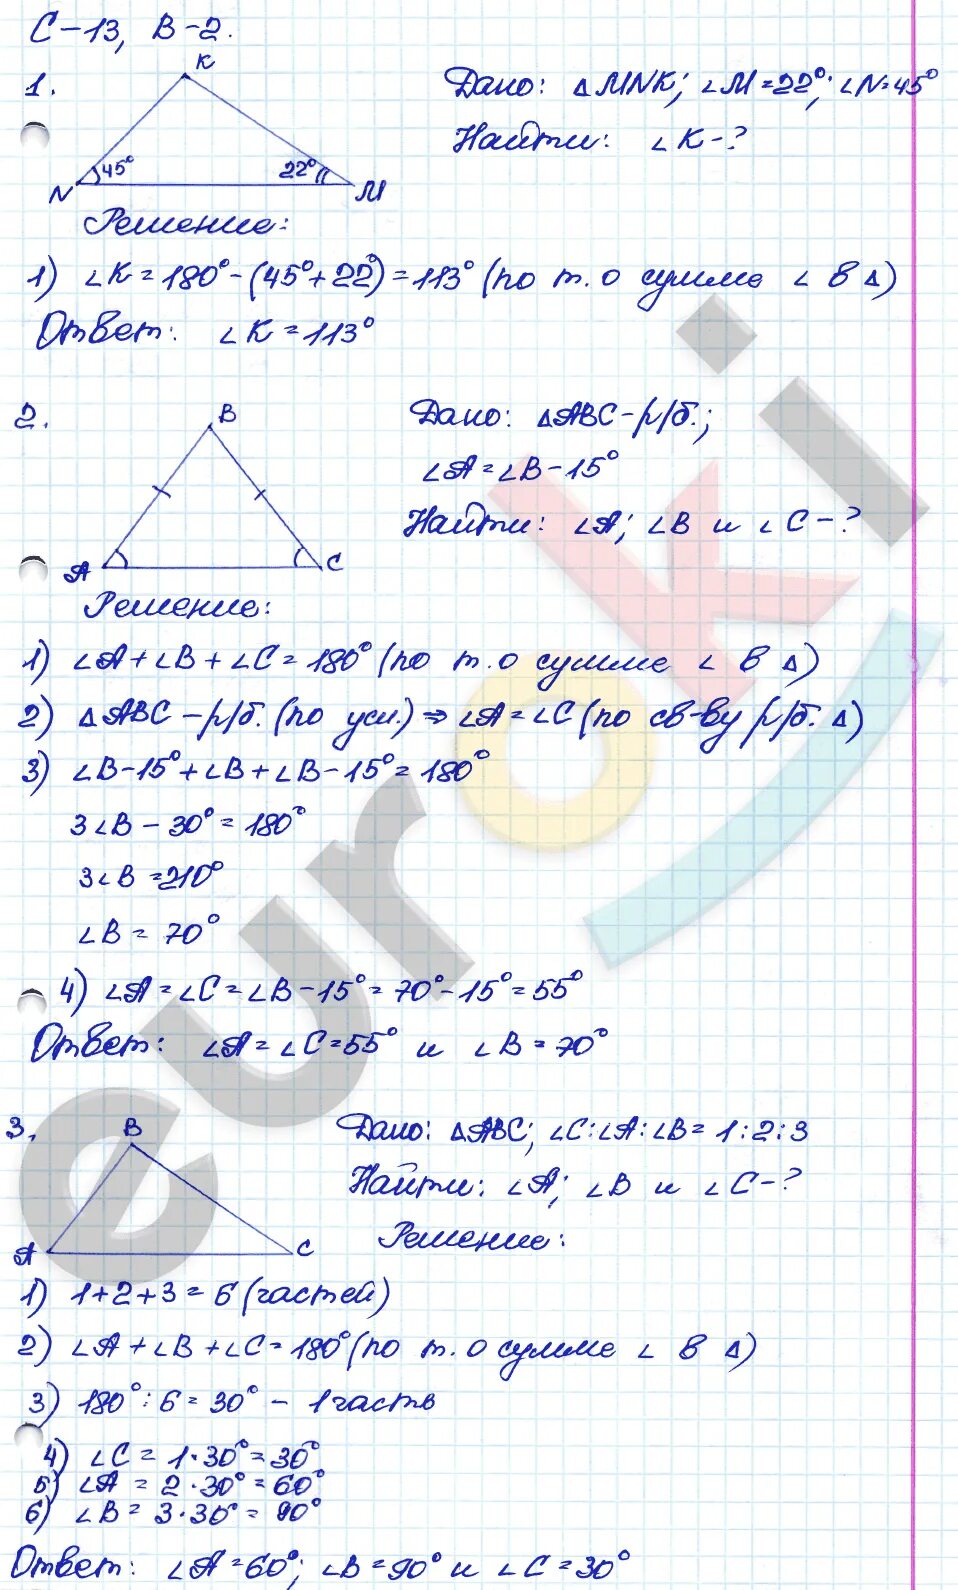 С-13, В-2.
1.
K
45°
22°
N
M
Дано: △MNK; ∠M=22°; ∠N=45°
Найти: ∠K-?
Решение:
1) ∠K=180°-(45°+22°)=113° (по т. о сумме ∠ в △)
Ответ: ∠K=113°
2.
B
A
C
Дано: △ABC-р/б.;
∠A=∠B-15°
Найти: ∠A; ∠B и ∠C-?
Решение:
1) ∠A+∠B+∠C=180° (по т. о сумме ∠ в △)
2) △ABC-р/б. (по усл.) ⇒ ∠A=∠C (по св-ву р/б. △)
3) ∠B-15°+∠B+∠B-15°=180°
3∠B-30°=180°
3∠B=210°
∠B=70°
4) ∠A=∠C=∠B-15°=70°-15°=55°
Ответ: ∠A=∠C=55° и ∠B=70°
3.
B
A
C
Дано: △ABC; ∠C:∠A:∠B=1:2:3
Найти: ∠A; ∠B и ∠C-?
Решение:
1) 1+2+3=6 (частей)
2) ∠A+∠B+∠C=180° (по т. о сумме ∠ в △)
3) 180°:6=30° - 1 часть
4) ∠C=1·30°=30°
5) ∠A=2·30°=60°
6) ∠B=3·30°=90°
Ответ: ∠A=60°; ∠B=90° и ∠C=30°
euroki